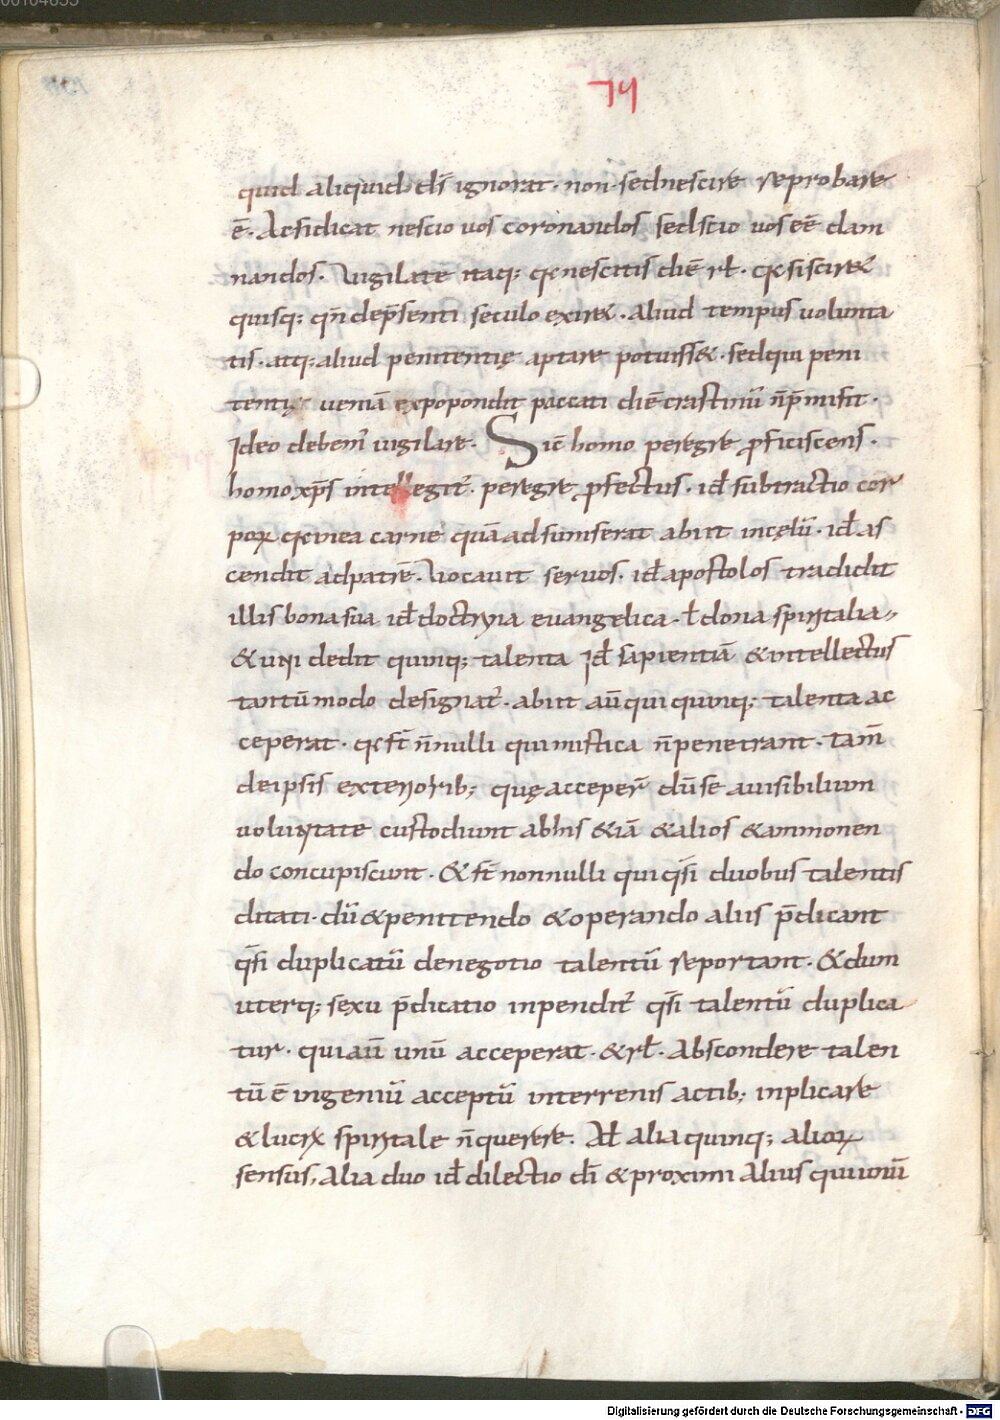 00104655
74
quid aliquid d̄s ignorat · non · sed nescire reprobare
ē · Ac si dicat nescio uos coronandos sed scio uos eē dam
nandos · Vigilate itaq; q̄ nescitis diē rł · q̄ si sciret
quisq; qn̄ de p̄senti seculo exiret · aliud tempus uolunta
tis · atq; aliud penitentię aptare potuiss& · sed qui peni
tentię ueniā expopondit peccati diē crastinū n̄ p̄misit ·
Ideo debem̄ uigilare · Sic̄ homo peregre proficiscens ·
homo xp̄s intellegit̄ · peregre profectus · id̄ subtractio cor
porꝝ q̄ in ea carne quā adsumserat abiit in cęlū · id̄ as
cendit ad patrē · Vocauit seruos · id̄ apostolos tradidit
illis bona sua id̄ doctrina euangelica · ł dona spiritalia
& uni dedit quinq; talenta Id̄ sapientiā & intellectus
tantū modo designat̄ · abiit aū qui quinq; talenta ac
ceperat · q̄ st̄ n̄nulli qui mistica n̄ penetrant · tam̄
de ipsis exteriorib; quę acceper̄ dū se a uisibilium
uoluntate custodiunt ab his & iā & alios & ammonen
do concupiscunt · & st̄ nonnulli qui q̄si duobus talentis
ditati · dū & penitendo & operando aliis p̄dicant
q̄si duplicatū de negotio talentū reportant · & dum
uterq; sexu p̄dicatio inpendit̄ q̄si talentū duplica
tur · qui aū unū acceperat · & rł · Abscondere talen
tū ē ingeniū acceptū in terrenis actib; inplicare
& lucrꝝ spiritale n̄ querere · Ał alia quinq; aliorꝝ
sensus, Alia duo id̄ dilectio dī & proximi Alius qui unū
Digitalisierung gefördert durch die Deutsche Forschungsgemeinschaft - DFG